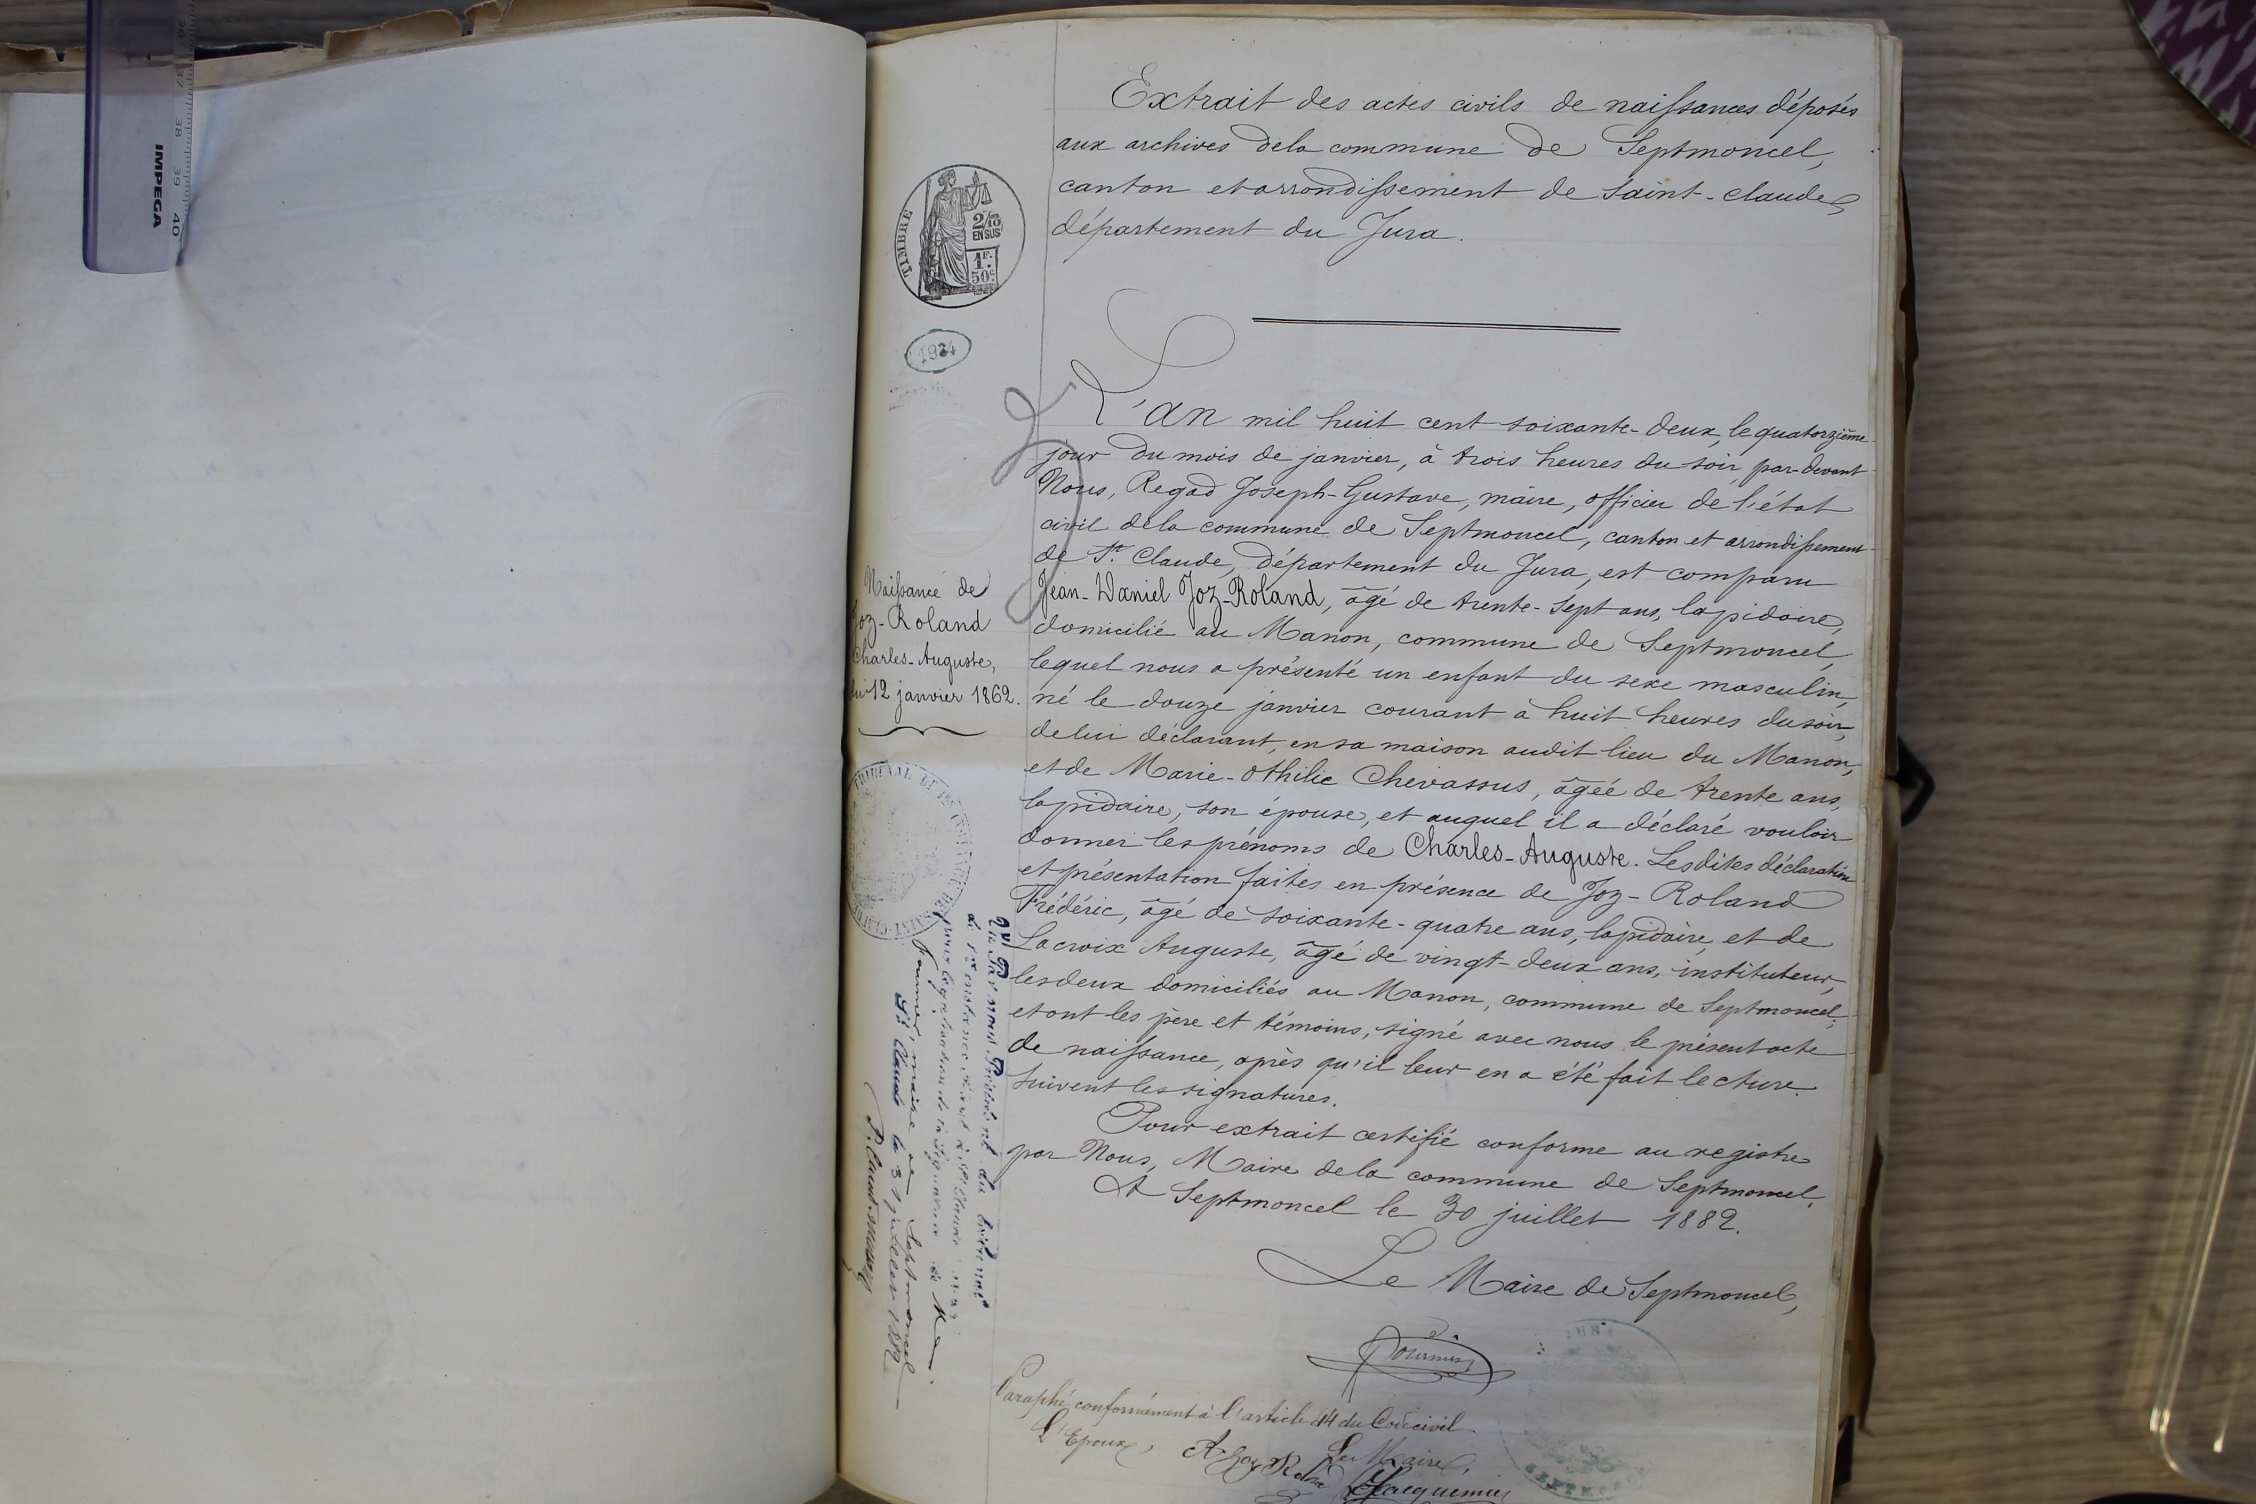 36 37 38 39 40
IMPEGA
Extrait des actes civils de naissances déposés
aux archives de la commune de Septmoncel,
canton et arrondissement de Saint-Claude,
département du Jura.
TIMBRE
2/10
EN SUS
1F.
50c
1934
L'an mil huit cent soixante-deux, le quatorzième
jour du mois de janvier, à trois heures du soir, par-devant
Nous, Regad Joseph-Gustave, maire, officier de l'état
civil de la commune de Septmoncel, canton et arrondissement
de St. Claude, département du Jura, est comparu
Jean-Daniel Joz-Roland, âgé de trente-sept ans, lapidaire,
domicilié au Manon, commune de Septmoncel,
lequel nous a présenté un enfant du sexe masculin,
né le douze janvier courant à huit heures du soir,
de lui déclarant, en sa maison audit lieu du Manon,
et de Marie-Othilie Chevassus, âgée de trente ans,
lapidaire, son épouse, et auquel il a déclaré vouloir
donner les prénoms de Charles-Auguste. Lesdites déclaration
et présentation faites en présence de Joz-Roland
Frédéric, âgé de soixante-quatre ans, lapidaire, et de
Lacroix Auguste, âgé de vingt-deux ans, instituteur,
les deux domiciliés au Manon, commune de Septmoncel;
et ont les père et témoins, signé avec nous le présent acte
de naissance, après qu'il leur en a été fait lecture.
Suivent les signatures.
Pour extrait certifié conforme au registre
par Nous, Maire de la commune de Septmoncel.
A Septmoncel le 30 juillet 1882.
Le Maire de Septmoncel,
Fournier
Paraphé conformément à l'article 44 du Code civil
L'Epoux, Le Maire,
A Joz Roland Jacquemin
Naissance de
Joz-Roland
Charles-Auguste,
du 12 janvier 1862.
TRIBUNAL DE 1RE INSTANCE DE SAINT-CLAUDE
Vu par nous Président du tribunal
de 1re instance séant à St Claude
pour légalisation de la signature de M.
Fournier, maire de Septmoncel
St Claude le 31 juillet 1882